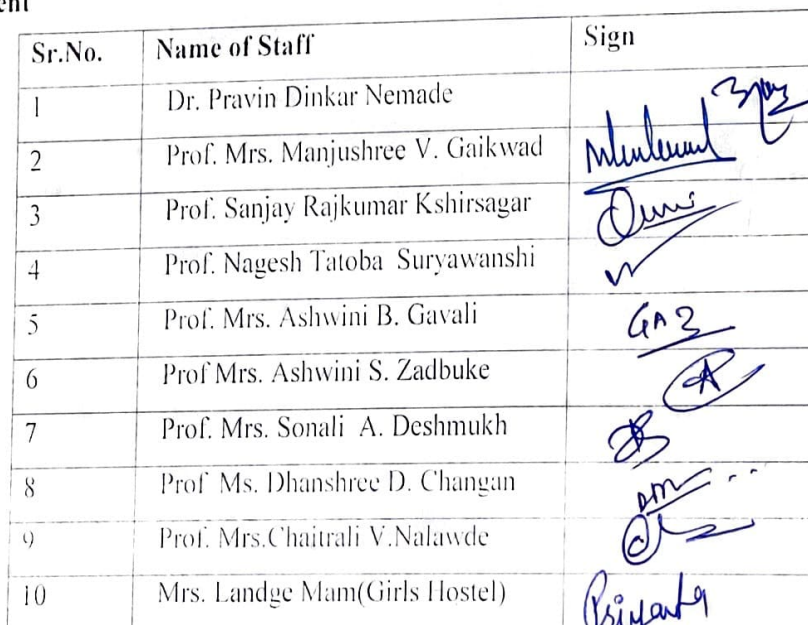 ent
Sr.No. Name of Staff Sign
1 Dr. Pravin Dinkar Nemade
2 Prof. Mrs. Manjushree V. Gaikwad
3 Prof. Sanjay Rajkumar Kshirsagar
4 Prof. Nagesh Tatoba Suryawanshi
5 Prof. Mrs. Ashwini B. Gavali
6 Prof Mrs. Ashwini S. Zadbuke
7 Prof. Mrs. Sonali A. Deshmukh
8 Prof Ms. Dhanshree D. Changan
9 Prof. Mrs.Chaitrali V.Nalawde
10 Mrs. Landge Mam(Girls Hostel)